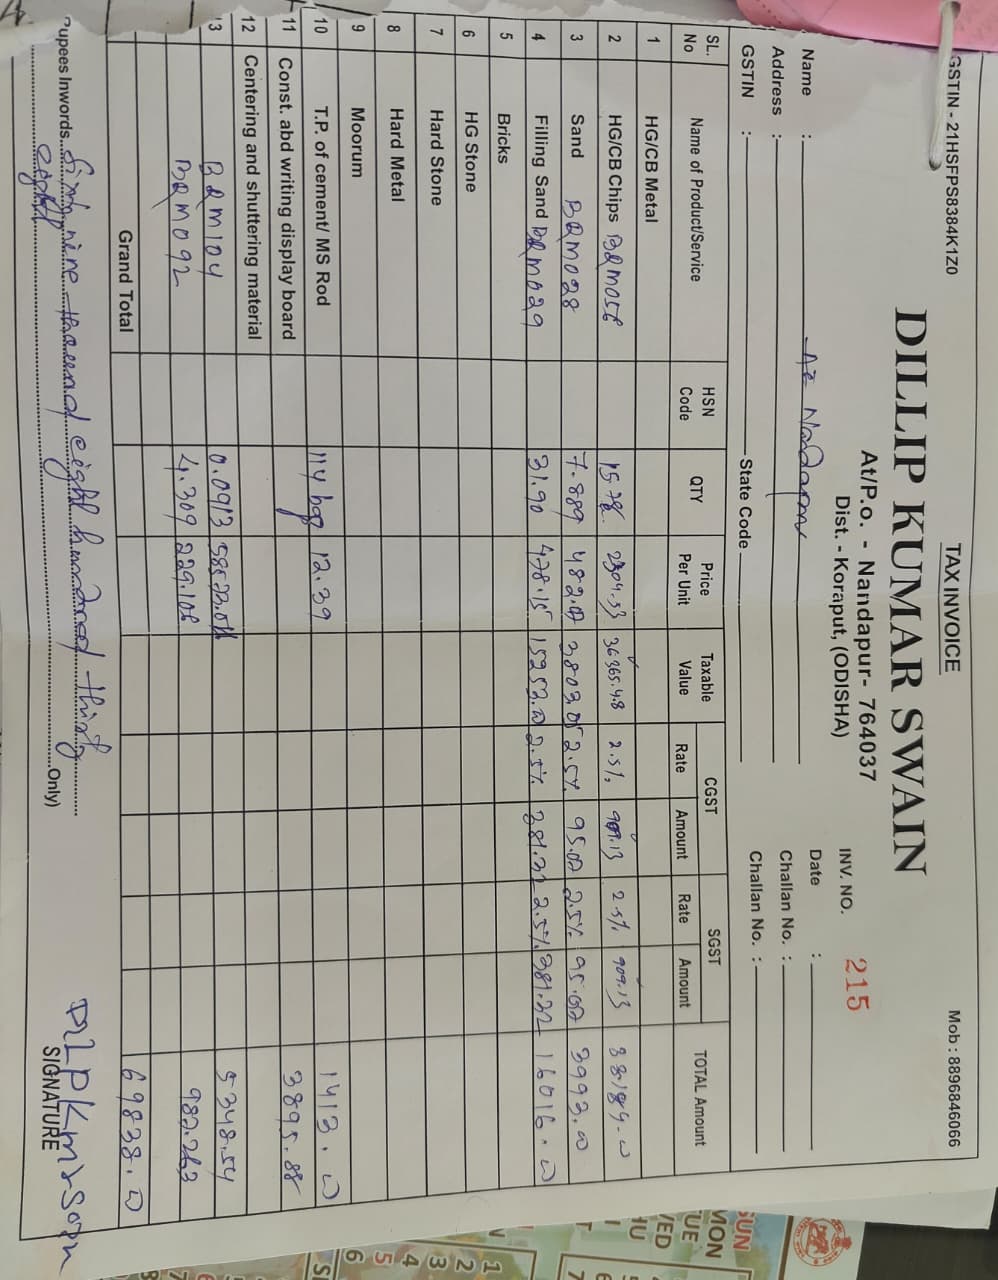 GSTIN - 21HSFPS8384K1Z0 TAX INVOICE Mob : 8896846066
DILLIP KUMAR SWAIN
At/P.o. - Nandapur- 764037
Dist. - Koraput, (ODISHA)
INV. NO. 215
Name : Nandapur
Date :
Address :
Challan No. :
GSTIN : State Code
Challan No. :
SL. No Name of Product/Service HSN Code QTY Price Per Unit Taxable Value CGST Rate Amount SGST Rate Amount TOTAL Amount
1 HG/CB Metal
2 HG/CB Chips 15.78 2304.53 36365.48 2.5% 909.13 2.5% 909.13
3 Sand BRM028 7.889 482.07 3803.05 2.5% 95.07 2.5% 95.07 3993.00
4 Filling Sand BRM029 31.90 478.15 15253.00 2.5% 381.32 2.5% 381.32 16016.00
5 Bricks
6 HG Stone
7 Hard Stone
8 Hard Metal
9 Moorum
10 T.P. of cement/ MS Rod 114 bag 12.39 1413.00
11 Const. abd writing display board 3895.88
12 Centering and shuttering material
13 BRM104 0.0913 5348.54
BRM092 4.309 229.108 982.263
Grand Total 69838.00
Rupees Inwords Sixty nine thousand eight hundred thirty
eight Only)
SIGNATURE
SUN
MON
TUE
WED
THU
1
2
3
4
5
6